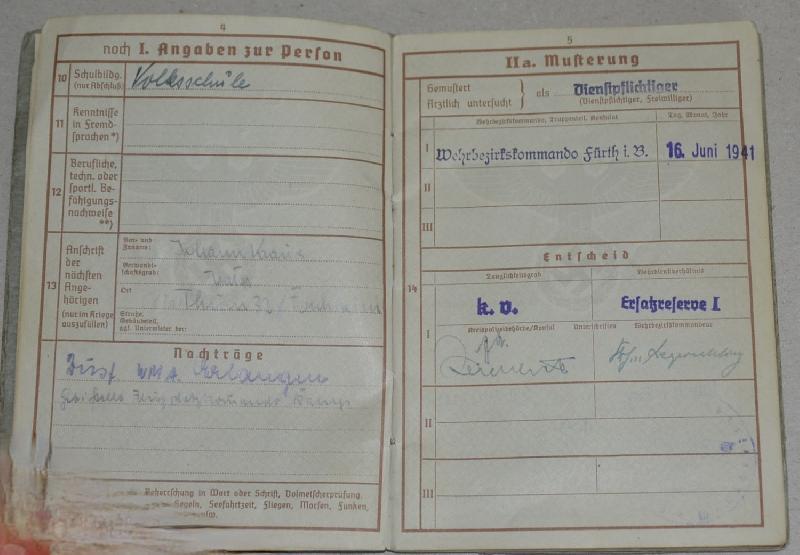 4
noch I. Angaben zur Person
10 Schulbildg. (nur Abschluß)
Volksschule
11 Kenntnisse in Fremd-
sprachen *)
12 Berufliche,
techn. oder
sportl. Be-
fähigungs-
nachweise
**)
13 Anschrift
der
nächsten
Ange-
hörigen
(nur im Kriege
auszufüllen)
Vor- und
Zuname:
Johann
Verwandt-
schaftsgrad:
Vater
Ort
Straße,
Gebäudeteil,
ggf. Untermieter bei:
Nachträge
Erlangen
Beherrschung in Wort oder Schrift, Dolmetscherprüfung.
Segeln, Seefahrtzeit, Fliegen, Morsen, Funken,
usw.
5
IIa. Musterung
Gemustert
Ärztlich untersucht
als Dienstpflichtiger
(Dienstpflichtiger, Freiwilliger)
Wehrbezirkskommando, Truppenteil, Konsulat
Tag, Monat, Jahr
I Wehrbezirkskommando Fürth i. B. 16. Juni 1941
II
III
Entscheid
14
Tauglichkeitsgrad
Wehrdienstverhältnis
I k. v. Ersatzreserve I
Kreispolizeibehörde/Konsul Unterschriften Wehrbezirkskommandeur
II
III